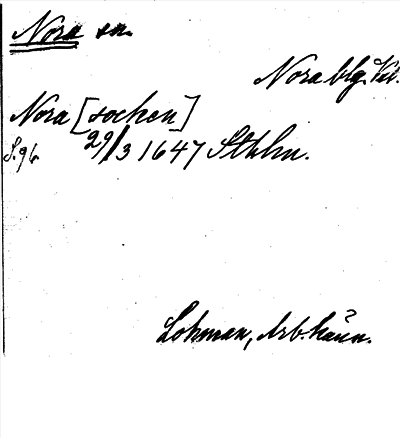 Nora sn.
Nora blg. Vstl.
Nora [sochen]
S. 96. 29/3 1647 Sthlm.
Lohman, Arb. känn.